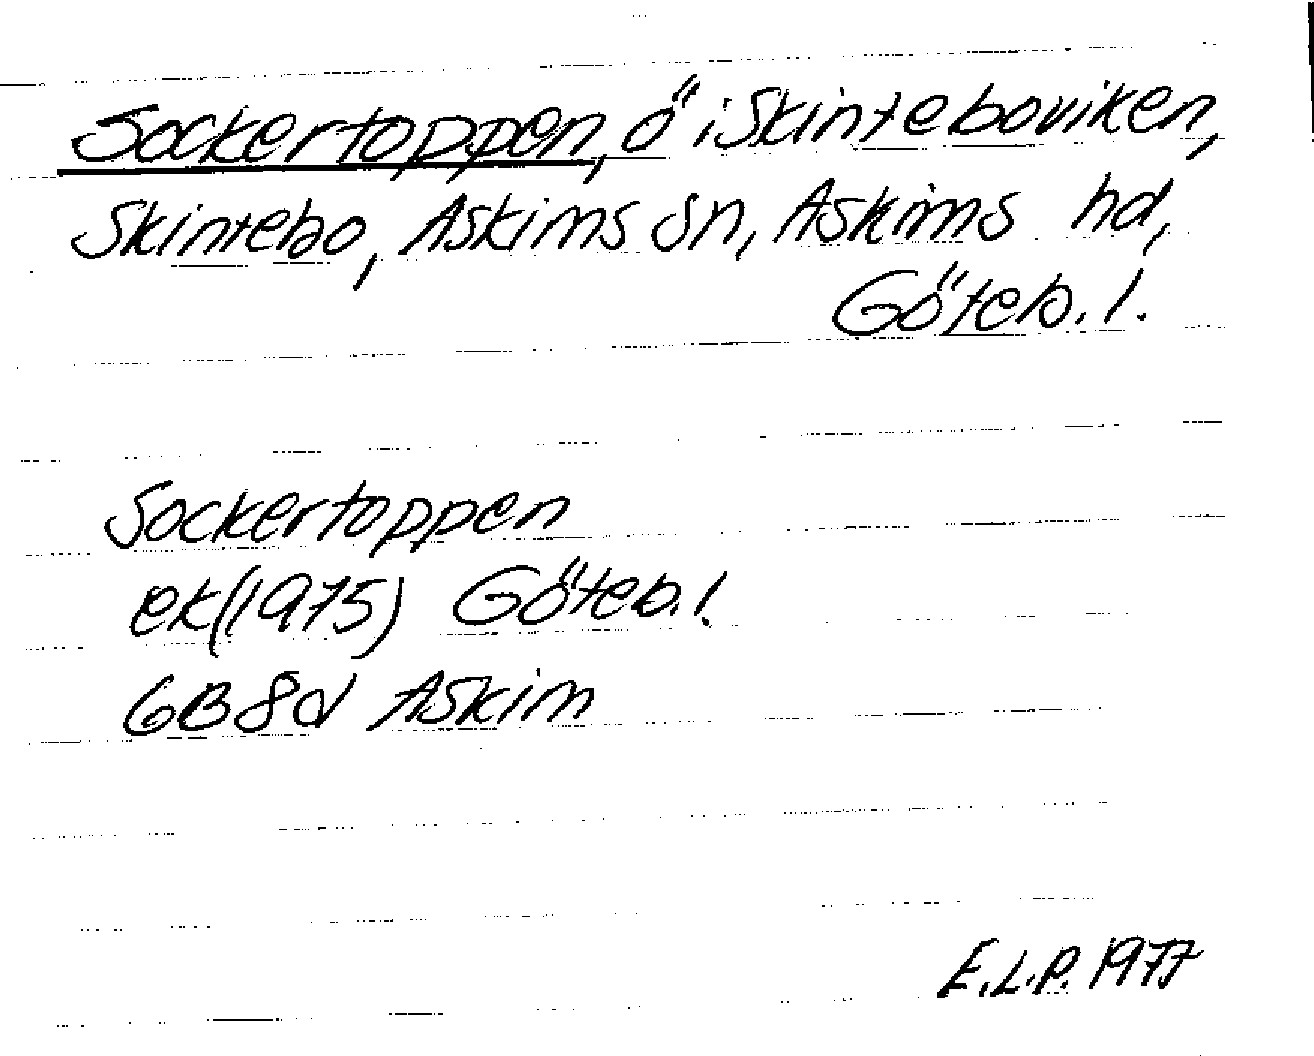 Sockertoppen, ö i Skinteboviken,
Skintebo, Askims sn, Askims hd,
Göteb. l.
Sockertoppen
ek(1975) Göteb. l.
6B8d Askim
E.L.P. 1977